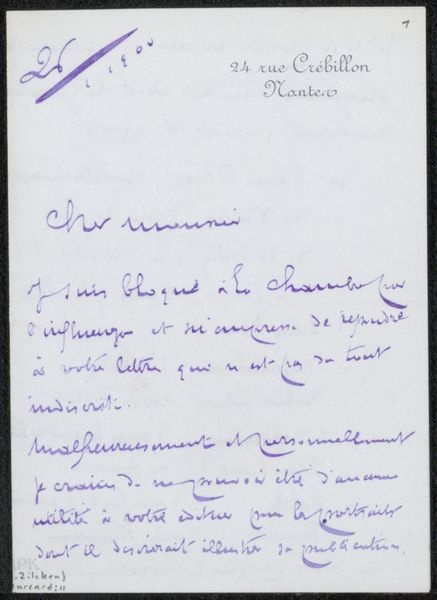 1
26
1900
24 rue Crébillon
Nantes
Cher monsieur
Je suis bloqué à la chambre par
l'influenza et m'empresse de répondre
à votre lettre qui n'est pas du tout
indiscrète.
Malheureusement et personnellement
je crains de ne pouvoir être d'aucune
utilité à votre éditeur pour les portraits
dont il désirerait illustrer sa publication.
Zilcken)